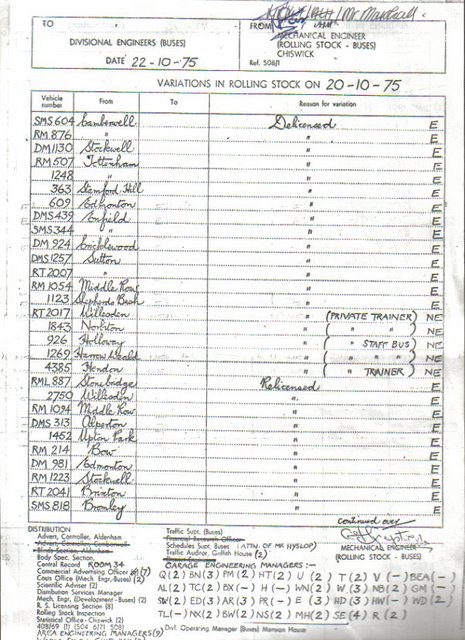 TO
FROM
DIVISIONAL ENGINEERS (BUSES)
DATE 22-10-75
MECHANICAL ENGINEER
(ROLLING STOCK - BUSES)
CHISWICK
Ref. 508/1
VARIATIONS IN ROLLING STOCK ON 20-10-75
Vehicle number From To Reason for variation
SMS 604 Camberwell Delicensed E
RM 876 " " E
DM 1130 Stockwell " E
RM 507 Tottenham " E
1248 " " E
363 Stamford Hill " E
609 Edmonton " E
DMS 439 Enfield " E
SMS 344 " " E
DM 924 Cricklewood " E
DMS 1257 Sutton " E
RT 2007 " " E
RM 1054 Middle Row " E
1123 Shepherds Bush " E
RT 2017 Willesden " (PRIVATE TRAINER) NE
1843 Norbiton " ( " " ) NE
926 Holloway " ( " STAFF BUS ) NE
1269 Harrow Weald " ( " " " ) NE
4385 Hendon " ( " TRAINER ) NE
RML 887 Stonebridge Relicensed E
2750 Willesden " E
RM 1094 Middle Row " E
DMS 313 Alperton " E
1462 Upton Park " E
RM 214 Bow " E
DM 981 Edmonton " E
RM 1223 Stockwell " E
RT 2041 Brixton " E
SMS 818 Bromley " E
continued over
MECHANICAL ENGINEER
(ROLLING STOCK - BUSES)
DISTRIBUTION
Advert. Controller, Aldenham
Body Spec. Section,
Central Record ROOM 34
Commercial Advertising Officer (7)
Cays Office (Mech. Engr. Buses) (2)
Scientific Adviser (2)
Distribution Services Manager
Mech. Engr. (Development - Buses) (2)
R. S. Licensing Section (8)
Rolling Stock Inspection
Statistical Office - Chiswick (2)
AREA ENGINEERING MANAGERS (9)
Traffic Supt. (Buses)
Financial Research Officer
Schedules Supt. Buses (ATTN. OF MR HYSLOP)
Traffic Auditor, Griffith House (2)
GARAGE ENGINEERING MANAGERS :-
Q (2) BN (3) PM (2) HT (2) U (2) T (2) V (-) BEA (-)
AL (2) TC (2) BX (-) H (-) WN (2) W (3) NB (2) GM (-)
SW (2) ED (3) AR (3) PR (-) E (3) HD (3) HW (-) WD (2)
TL (-) NX (2) BW (2) NS (2) MH (2) SE (4) R (2)
Divl. Operating Manager (Buses) Manson House